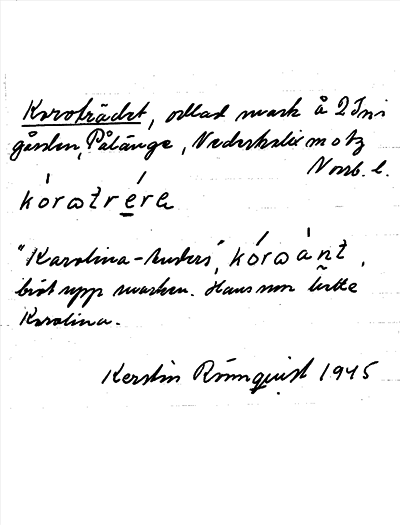 Karoträdet, odlad mark å 2 Jni
gården, Pålänge, Nederkalix motz
Norrb. l.
kóratrére
"Karolina-Anders", kóraánt,
bröt upp marken. Hans mor hette
Karolina.
Kerstin Rönnquist 1945